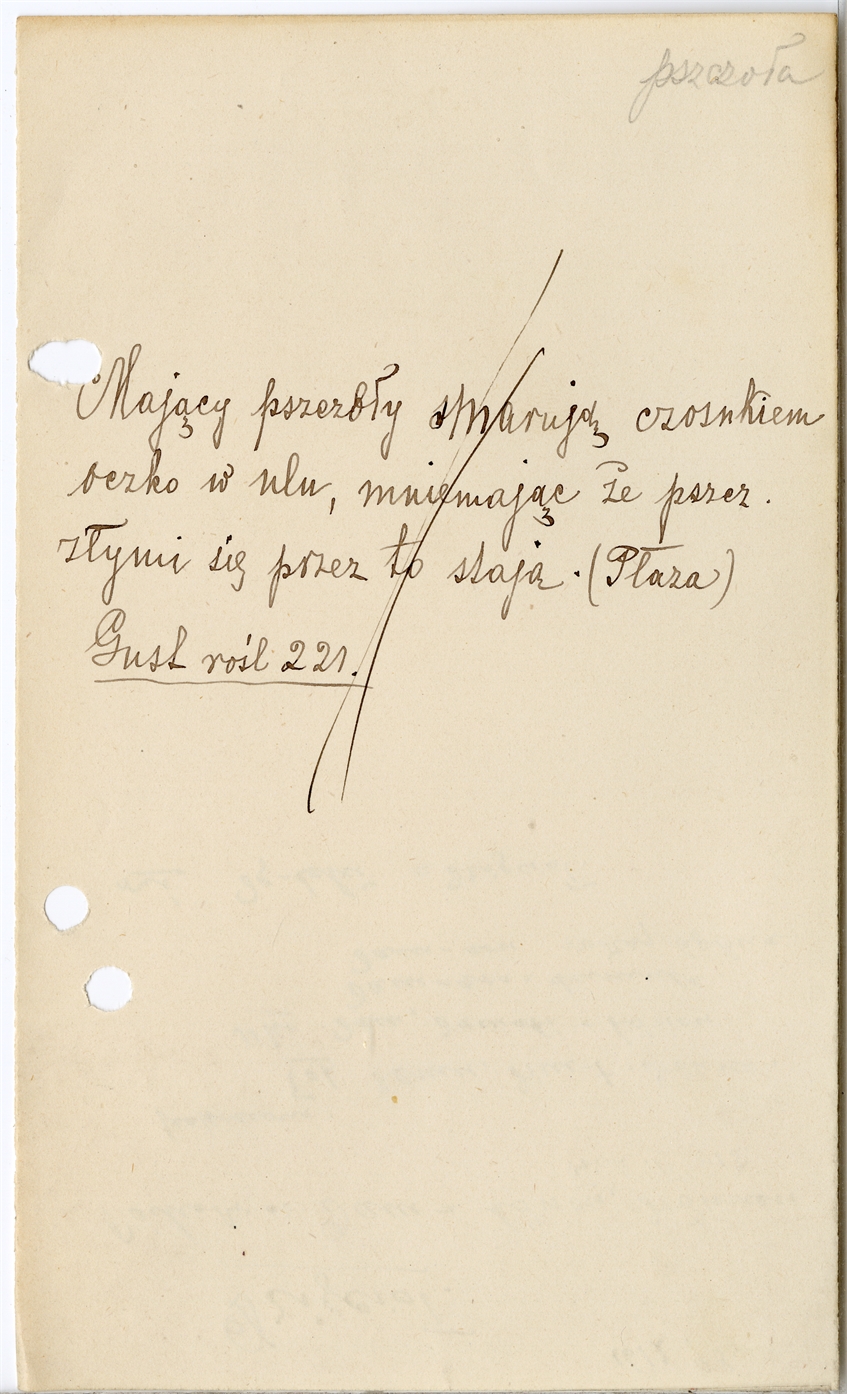 pszczoła
Mający pszczoły smarują czosnkiem
oczko w ulu, mniemając że pszcz.
złymi się przez to stają. (Płaza)
Gust rośl 221.